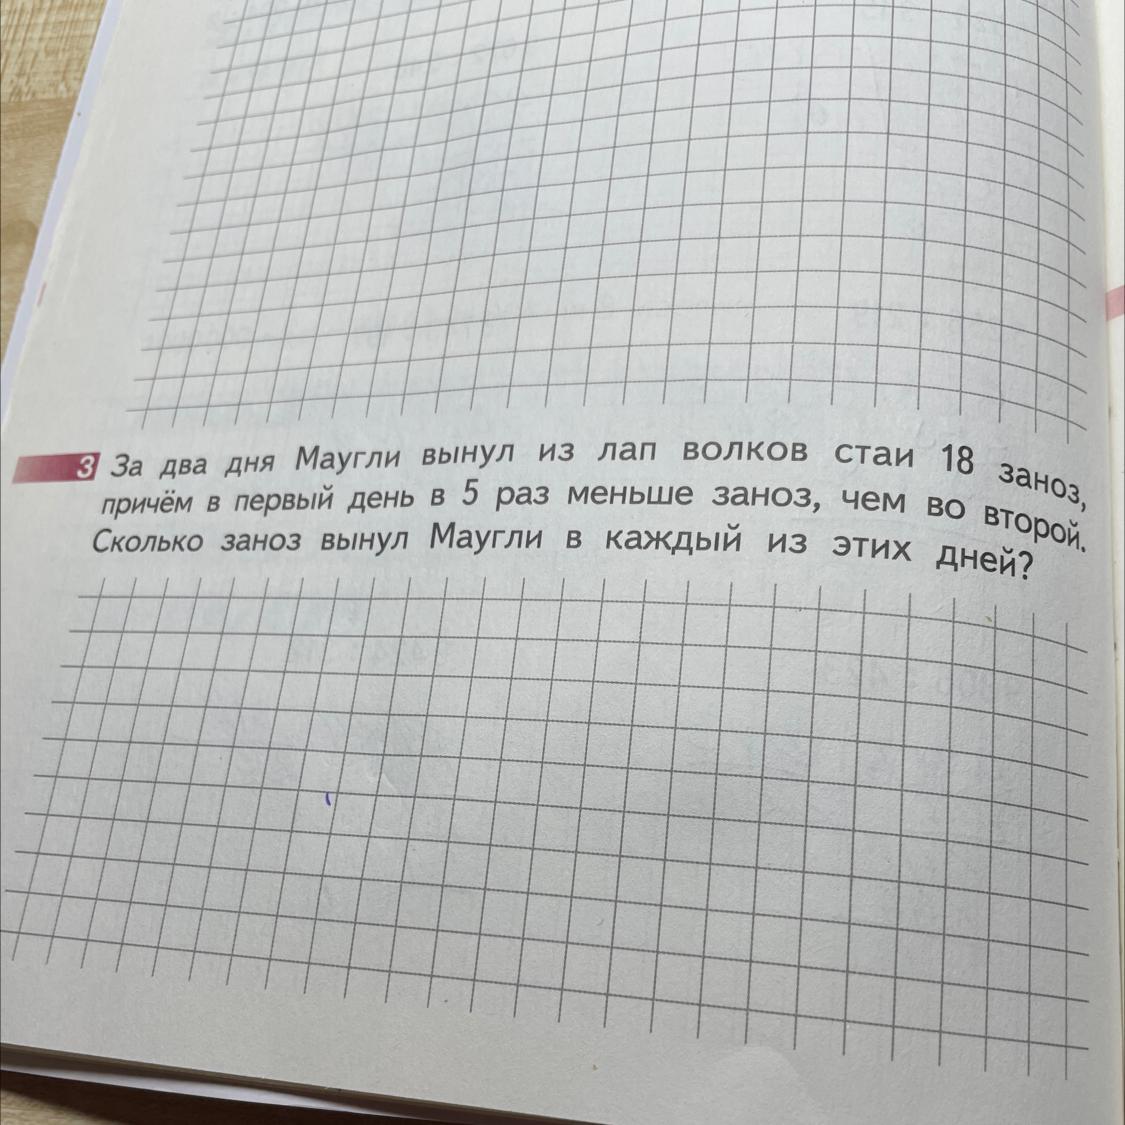 3 За два дня Маугли вынул из лап волков стаи 18 заноз,
причём в первый день в 5 раз меньше заноз, чем во второй.
Сколько заноз вынул Маугли в каждый из этих дней?